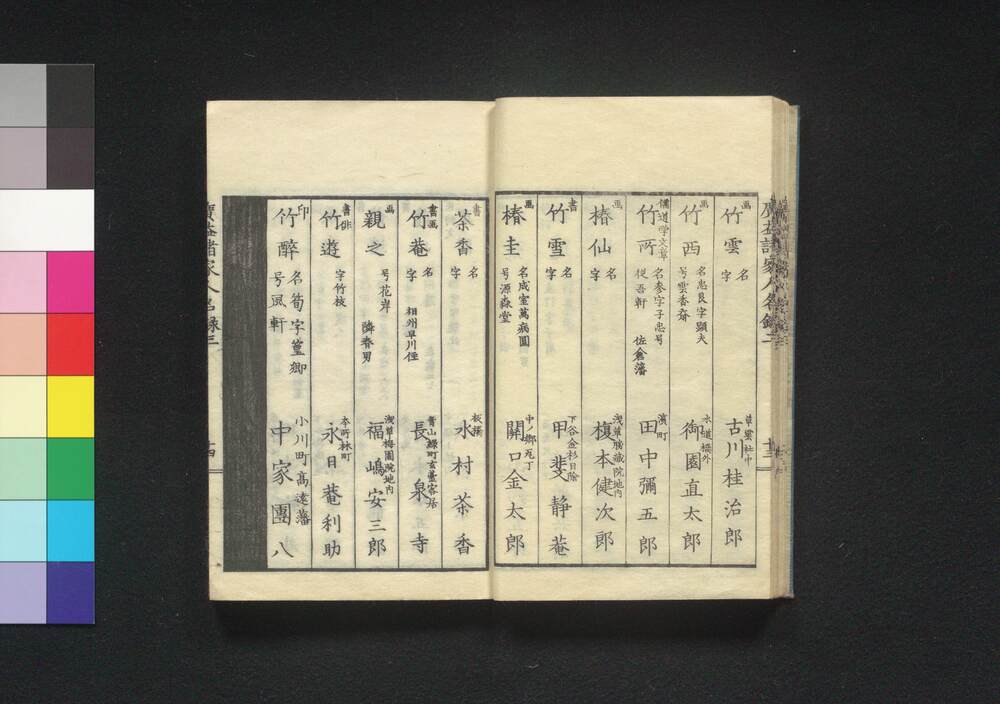 画 竹雲 名 字 草雲社中 古川桂治郎
画 竹西 名忠良字顕夫 号雲香斎 水道橋外 御園直太郎
儒道学文章 竹所 名参字子忠号 従吾軒 佐倉藩 濱町 田中彌五郎
画 椿仙 名 字 浅草勝蔵院地内 榎本健次郎
書 竹雪 名 字 下谷金杉日陰 甲斐静菴
椿圭 名成室萬病園 号源森堂 中ノ郷瓦丁 関口金太郎
書 茶香 名 字 板橋 水村茶香
書画 竹菴 名 字 相州早川侄 青山緑町玄臺寄居 長泉寺
画 親之 号花岸 隣春男 浅草梅園院地内 福嶋安三郎
書俳 竹遊 字竹枝 本所林町 永日菴利助
印 竹酔 名筍字篁卿 号風軒 小川町高遠藩 中家團八
廣益諸家人名録三
十四